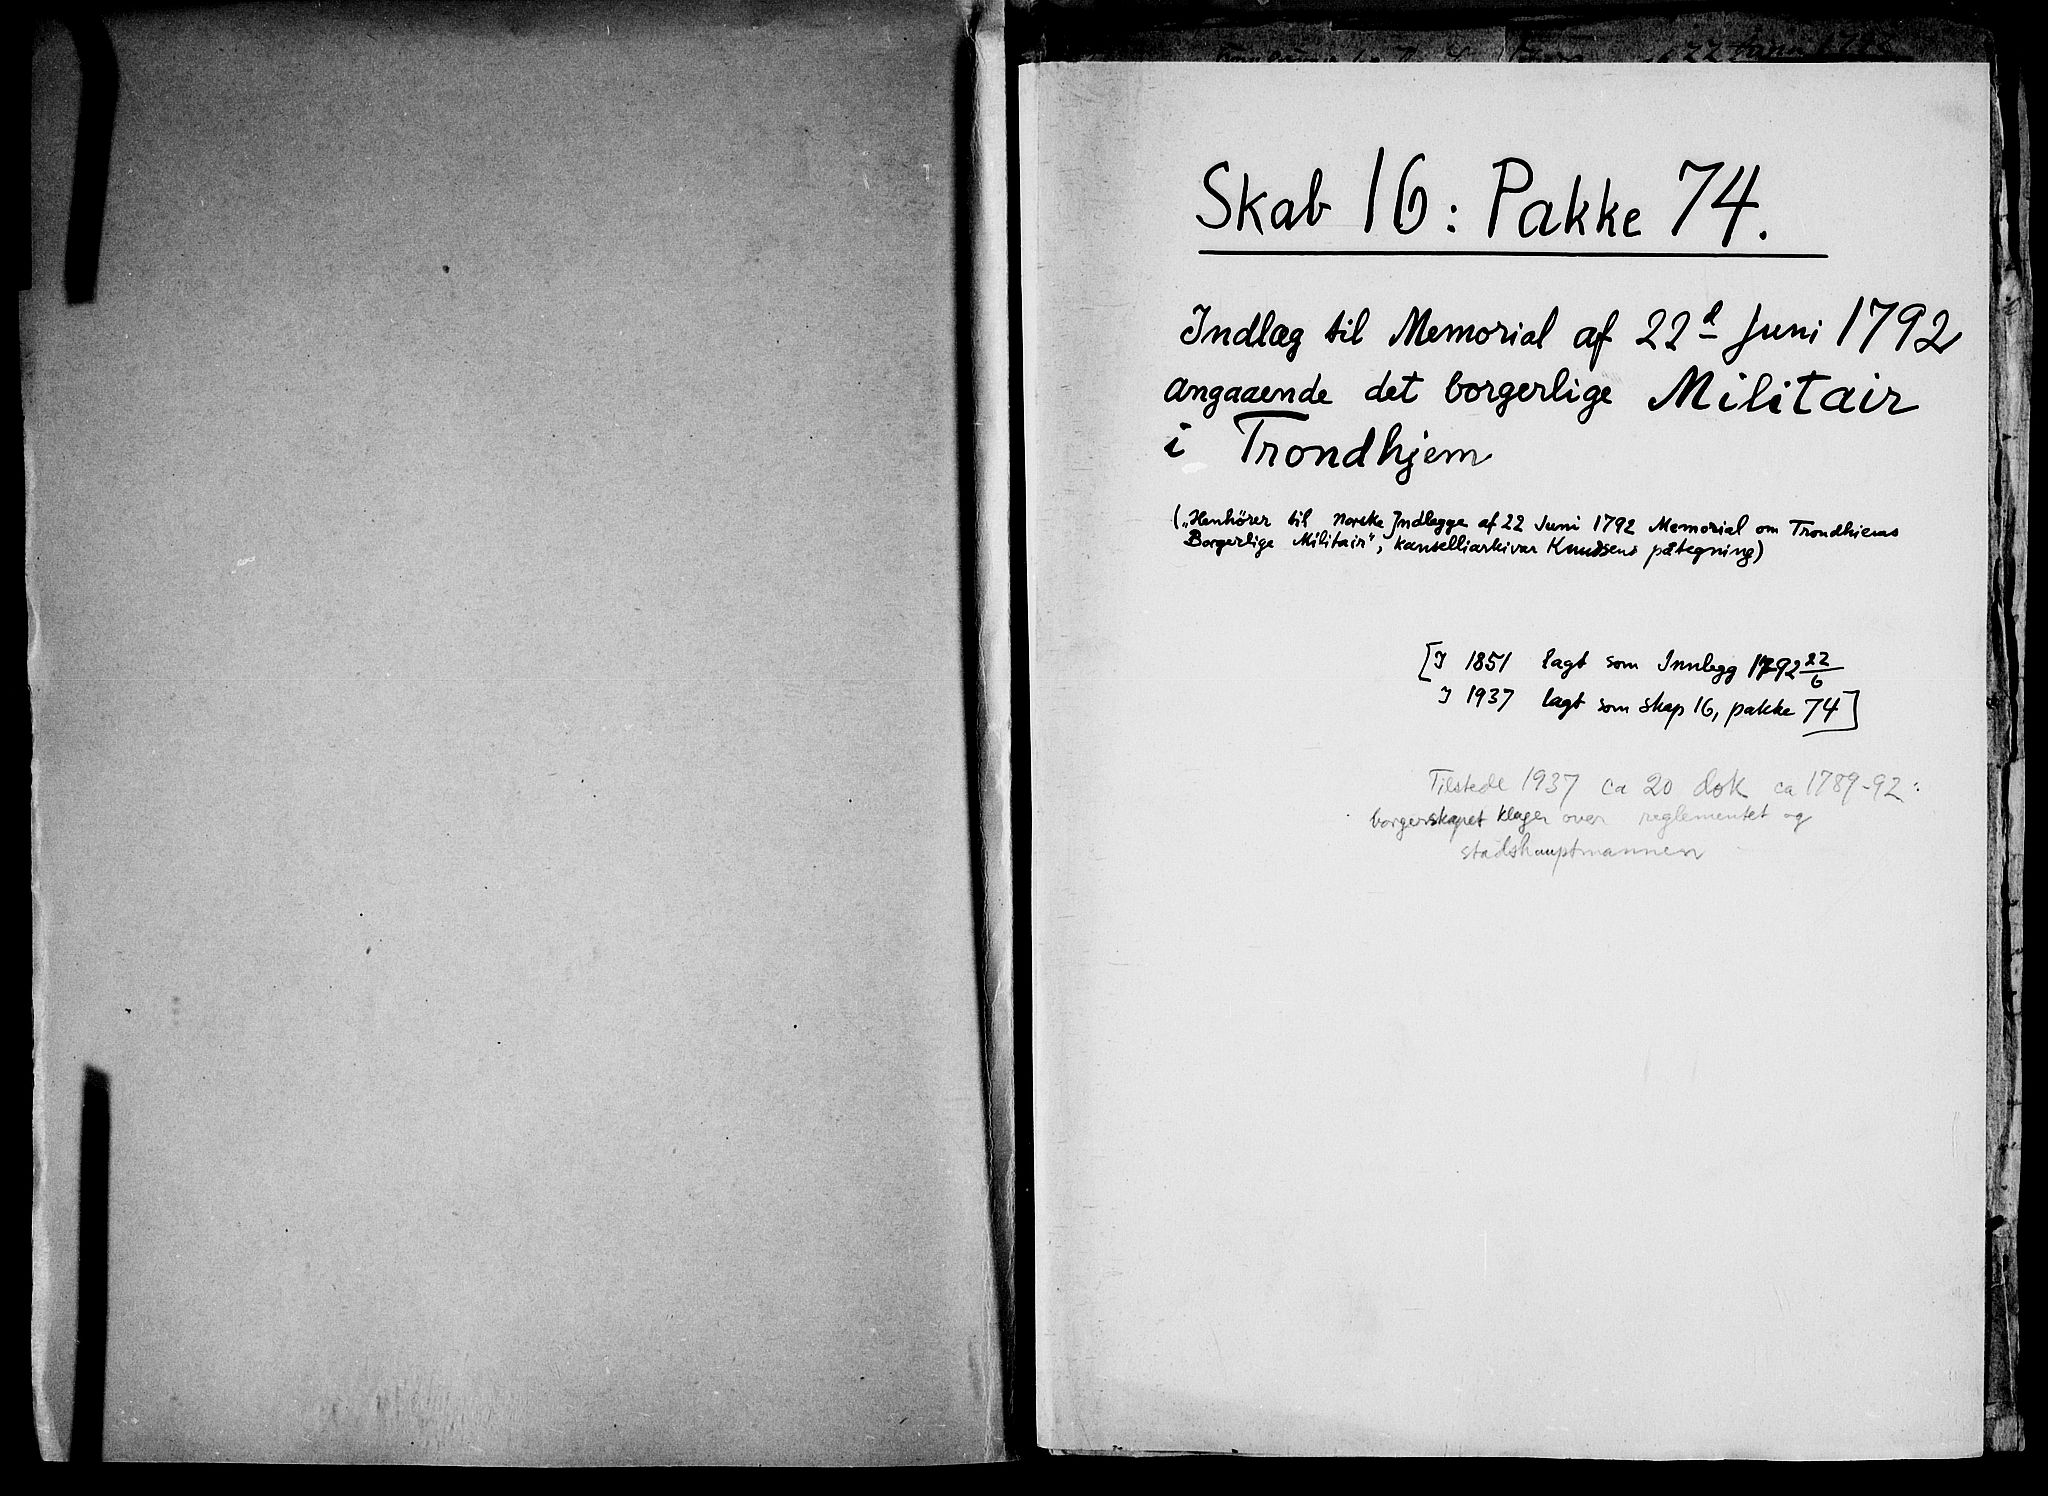 22 Juni
Skab 16: Pakke 74.
Indlæg til Memorial af 22d Juni 1792
angaaende det borgerlige Militair
i Trondhjem
(„Henhörer til Norske Indlegge af 22 Juni 1792 Memorial om Trondhiems
Borgerlige Militair", kanselliarkivar Knudsens påtegning)
[I 1851 lagt som Innlegg 1792 22/6
I 1937 lagt som skap 16, pakke 74]
Tilstede 1937 ca 20 dok ca 1789-92:
borgerskapet klager over reglementet og
stadshauptmannen